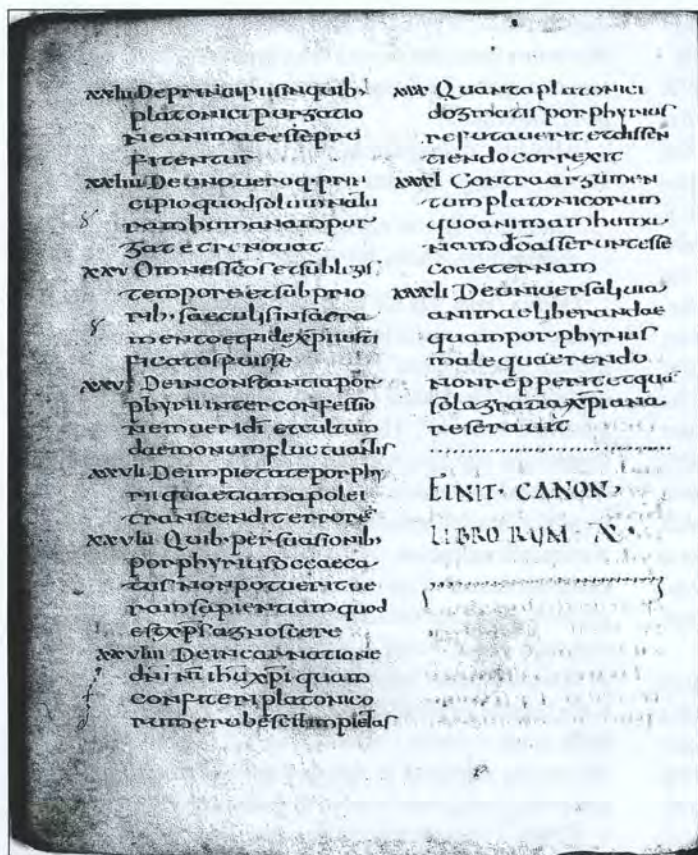 xxiii De principiis in quib,
platonici purgatio
nem animae esse pro
fitentur
xxiiii De uno veroq. prin
cipio quod solum natu
ram humanam pur
gat et renovat
xxv Omnes scos et sub legis
tempore et sub prio
rib. saeculis in sacra
mento et fide xpi iusti
ficatos fuisse
xxvi De inconstantia por
phyrii inter confessio
nem veri di et cultum
daemonum fluctuantis
xxvii De impietate porphy
rii qua etiam apolei
transcendit errore
xxviii Quib. persuasionib,
porphyrius occaeca
tus non potuerit ve
ram sapientiam quod
est xps agnoscere
xxviiii De incarnatione
dni ni ihu xpi quam
confiteri platonico
rum erubescit impietas
xxx Quanta platonici
dogmatis porphyrius
refutaverit et dissen
tiendo correxit
xxxi Contra argumen
tum platonicorum
quo animam huma
nam do asserunt esse
coaeternam
xxxii De universali via
animae liberandae
quam porphyrius
male quaerendo
non repperit et qua
sola gratia xpiana
reseravit
FINIT. CANON.
LIBRORUM. X.